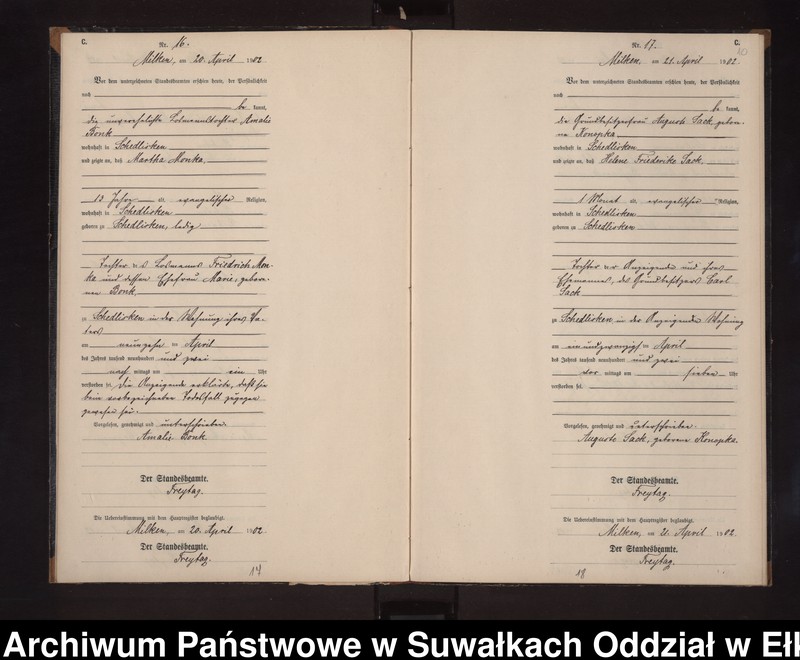 C.
Nr. 16.
Milken, am 20. April 1902
Vor dem unterzeichneten Standesbeamten erschien heute, der Persönlichkeit
nach
be kannt,
die unverehelichte Losmannstochter Amalie
Bonk
wohnhaft in Schedlisken
und zeigte an, daß Martha Monka,
13 Jahre alt, evangelischer Religion,
wohnhaft in Schedlisken
geboren zu Schedlisken, ledig
Tochter des Losmanns Friedrich Mon-
ka und dessen Ehefrau Marie, gebore-
nen Bonk
zu Schedlisken in der Wohnung ihres Va-
ters
am neunzehnten April
des Jahres tausend neunhundert und zwei
nach mittags um ein Uhr
verstorben sei. Die Anzeigende erklärte, daß sie
beim vorbezeichneten Todesfall zugegen
gewesen sei.
Vorgelesen, genehmigt und unterschrieben
Amalie Bonk
Der Standesbeamte.
Freytag.
Die Uebereinstimmung mit dem Hauptregister beglaubigt.
Milken, am 20. April 1902
Der Standesbeamte.
Freytag.
17
C.
10
Nr. 17.
Milken, am 21. April 1902.
Vor dem unterzeichneten Standesbeamten erschien heute, der Persönlichkeit
nach
be kannt,
die Grundbesitzerfrau Auguste Sack, gebore-
ne Konopka
wohnhaft in Schedlisken
und zeigte an, daß Helene Friederike Sack.
1 Monat alt, evangelischer Religion,
wohnhaft in Schedlisken
geboren zu Schedlisken
Tochter der Anzeigenden und ihres
Ehemannes, des Grundbesitzers Carl
Sack
zu Schedlisken in der Anzeigenden Wohnung
am einundzwanzigsten April
des Jahres tausend neunhundert und zwei
vor mittags um sieben Uhr
verstorben sei.
Vorgelesen, genehmigt und unterschrieben.
Auguste Sack, geborene Konopka.
Der Standesbeamte.
Freytag.
Die Uebereinstimmung mit dem Hauptregister beglaubigt.
Milken, am 21. April 1902.
Der Standesbeamte.
Freytag.
18
Archiwum Państwowe w Suwałkach Oddział w Ełk